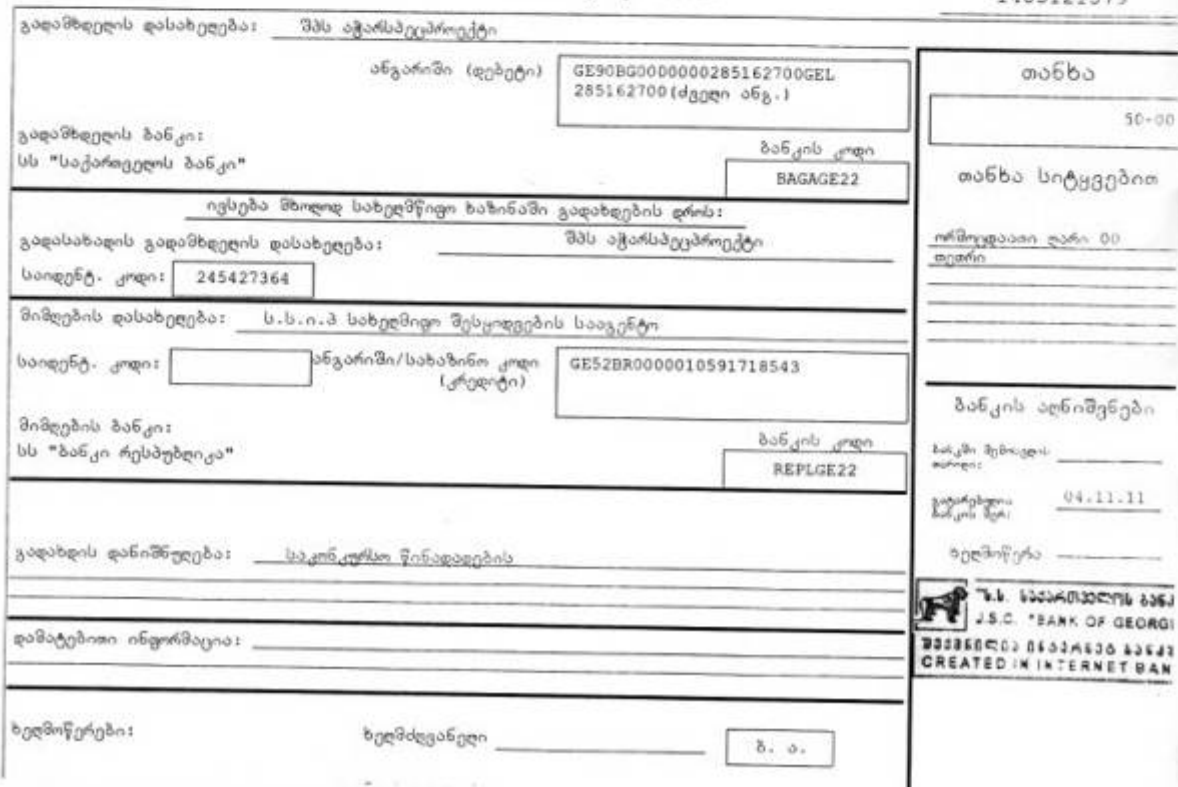 გადამხდელის დასახელება: შპს აჭარსპეცპროექტი
ანგარიში (დებეტი) GE90BG0000000285162700GEL
285162700(ძველი ანგ.)
გადამხდელის ბანკი:
სს "საქართველოს ბანკი"
ბანკის კოდი
BAGAGE22
ივსება მხოლოდ სახელმწიფო ხაზინაში გადახდების დროს:
გადასახადის გადამხდელის დასახელება: შპს აჭარსპეცპროექტი
საიდენტ. კოდი: 245427364
მიმღების დასახელება: ს.ს.ი.პ სახელმიფო შესყიდვების სააგენტო
საიდენტ. კოდი: ანგარიში/სახაზინო კოდი GE52BR0000010591718543
(კრედიტი)
მიმღების ბანკი:
სს "ბანკი რესპუბლიკა"
ბანკის კოდი
REPLGE22
გადახდის დანიშნულება: საკონკურსო წინადადების
დამატებითი ინფორმაცია:
ხელმოწერები: ხელმძღვანელი
ბ. ა.
თანხა
50-00
თანხა სიტყვებით
ორმოცდაათი ლარი 00
თეთრი
ბანკის აღნიშვნები
ბანკში შემოსვლის
თარიღი:
გატარებულია 04.11.11
ბანკის მერ:
ხელმოწერა
ს.ს. საქართველოს ბანკ
J.S.C. "BANK OF GEORGI
შექმნილია ინტერნეტ ბანკ
CREATED IN INTERNET BAN